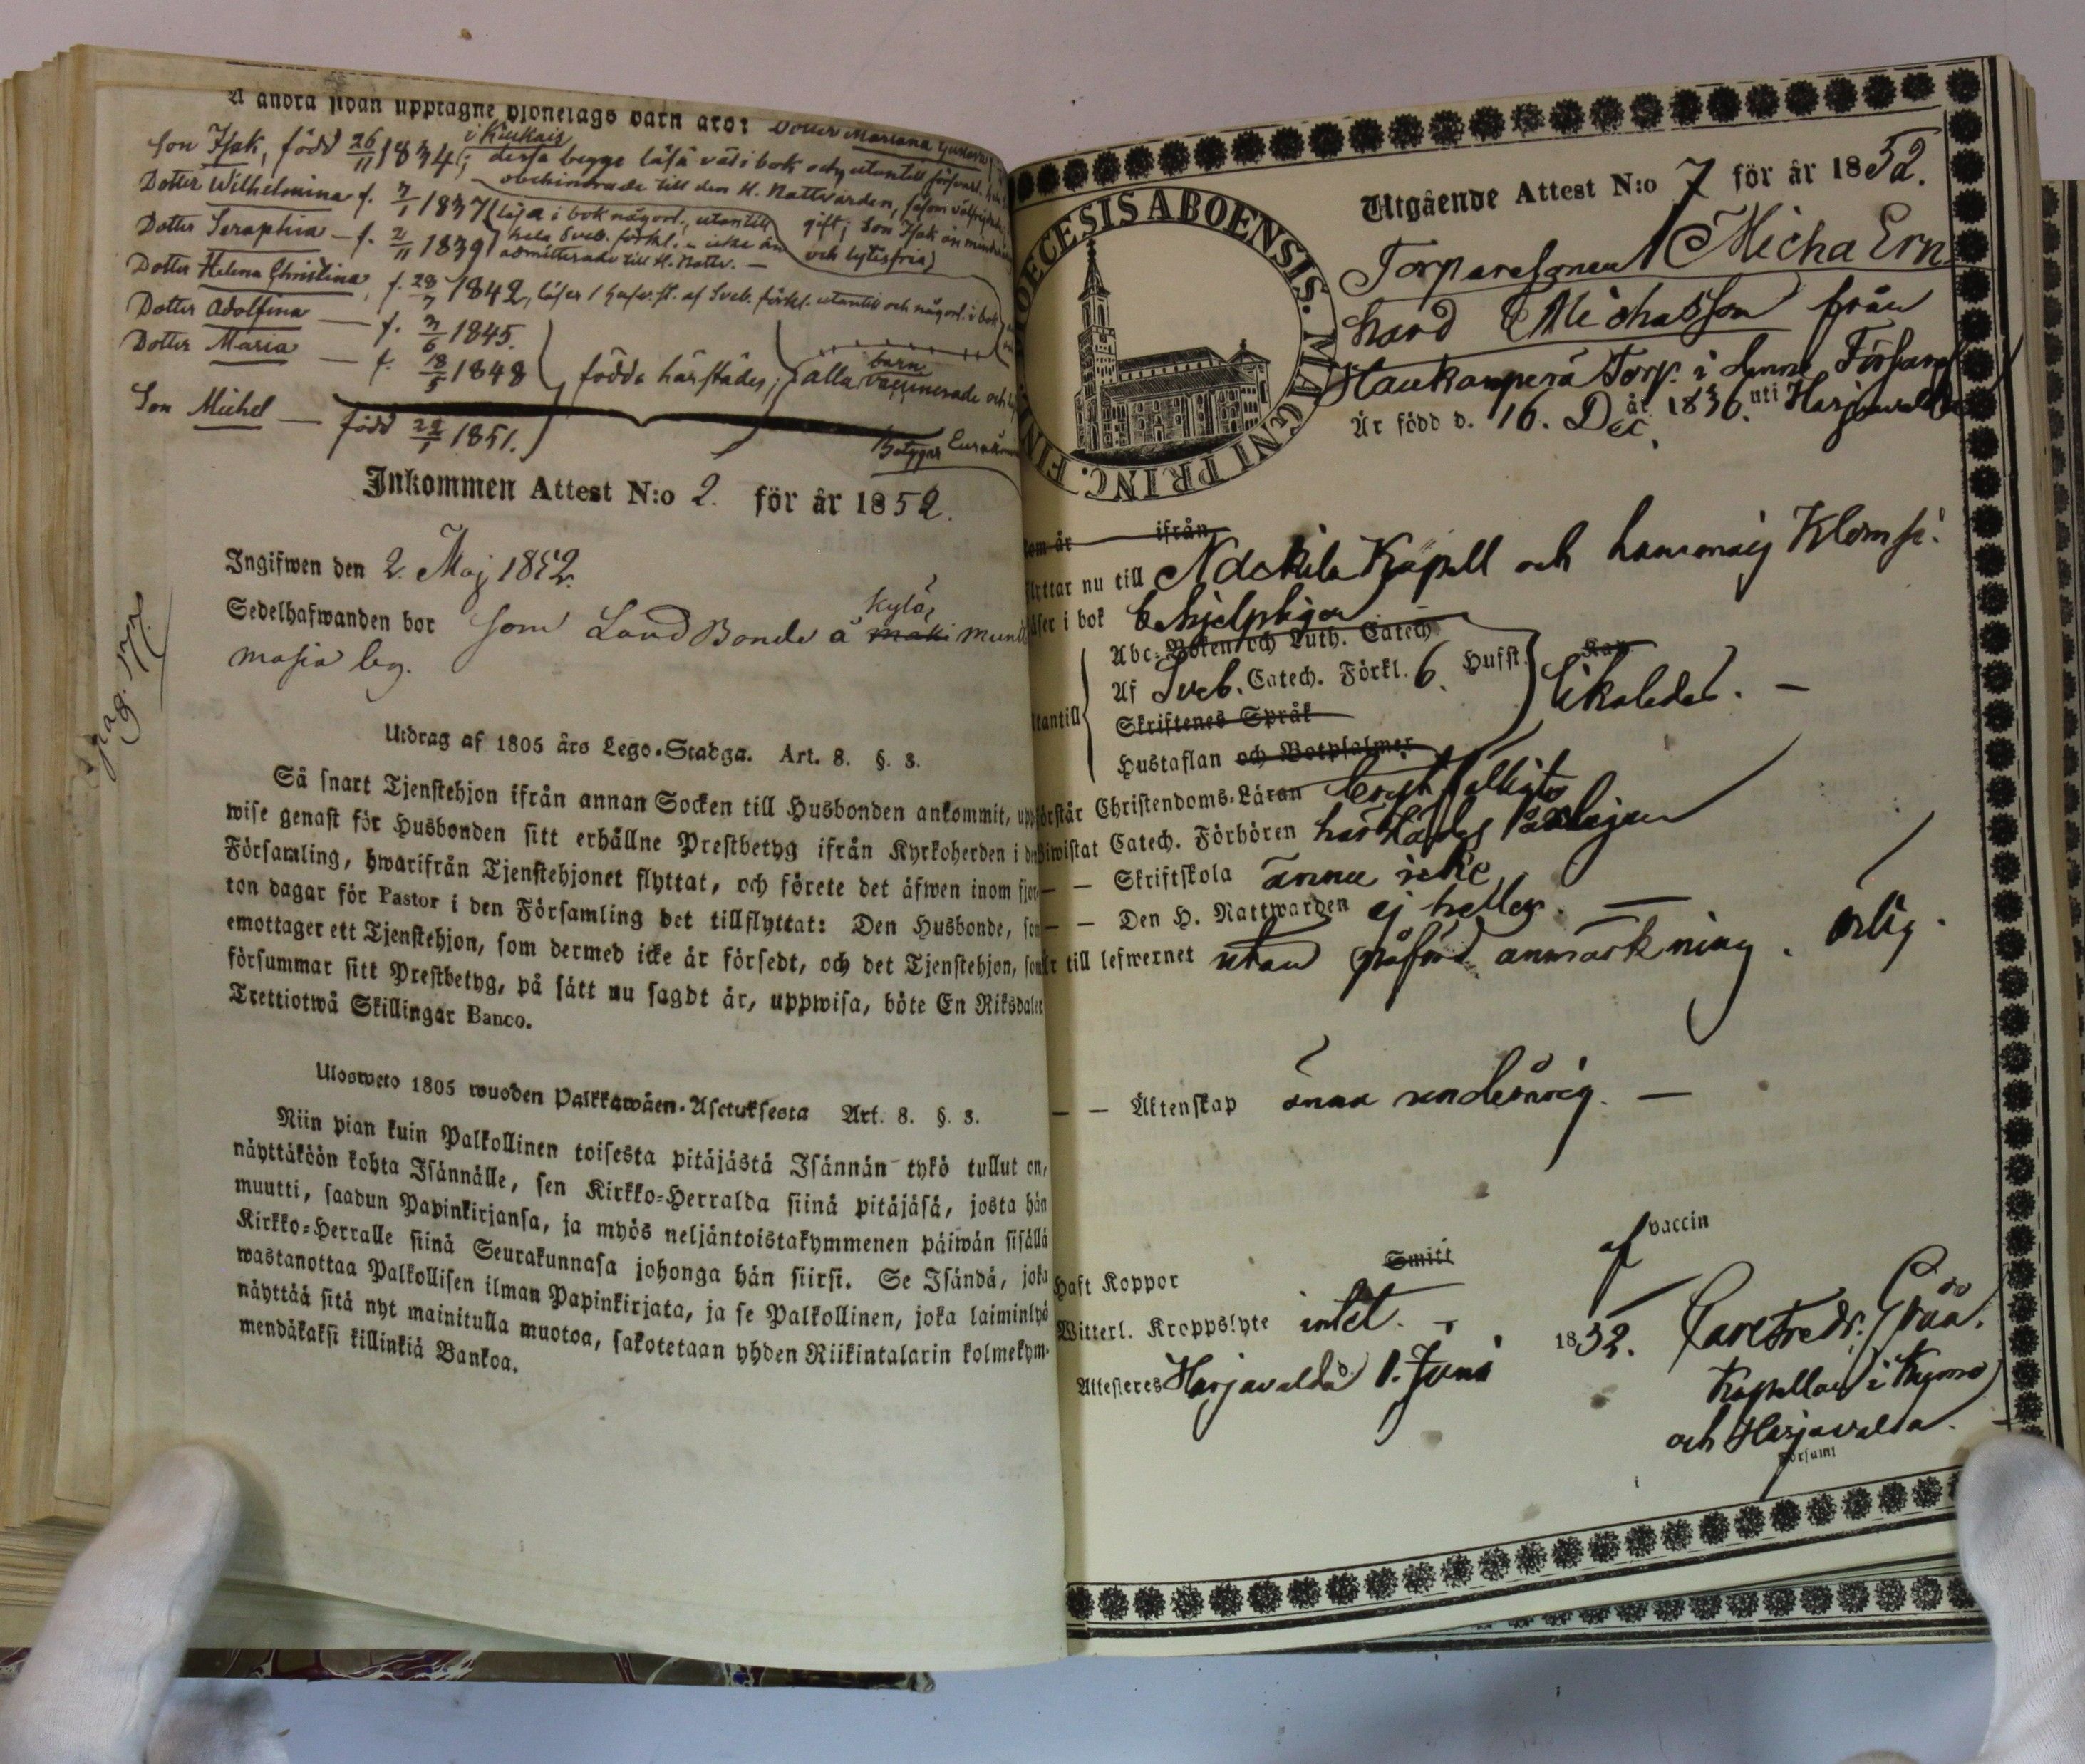 Å andra sidan upptagne hjonelags barn äro: Dotter Mariana Gustava
Son Isak, född 26/11 1834; i Kiukais dessa begge läsa väl i bok och utantill försvarl.
obehindrade till den H. Nattvarden, såsom välfrejdade
Dotter Wilhelmina f. 7/1 1837 läsa i bok någorl., utantill gift; Son Isak än minderårig
Dotter Seraphia — f. 2/11 1839 hela Sveb. förkl. - icke än och lytesfria)
admitterade till H. Nattv. —
Dotter Helena Christina, f. 28/7 1842, läser 1 hufv.st. af Sveb. förkl. utantill och någorl. i bok
Dotter Adolfina — f. 7/6 1845.
Dotter Maria — f. 18/5 1848 födda härstädes; alla barn vaccinerade och
Son Michel — född 22/1 1851.
Betygar
Inkommen Attest N:o 2. för år 1852.
Ingifwen den 2. Maj 1852.
Sedelhafwanden bor som LandBonde å maki kylä,
masia leg.
pag. 177.
Utdrag af 1805 års Lego-Stadga. Art. 8. §. 3.
Så snart Tjenstehjon ifrån annan Socken till Husbonden ankommit, upp-
wise genast för Husbonden sitt erhållne Prestbetyg ifrån Kyrkoherden i den
Församling, hwarifrån Tjenstehjonet flyttat, och förete det äfwen inom fjor-
ton dagar för Pastor i den Församling det tillflyttat: Den Husbonde, som
emottager ett Tjenstehjon, som dermed icke är försedt, och det Tjenstehjon, som
försummar sitt Prestbetyg, på sätt nu sagdt är, uppwisa, böte En Riksdaler
Trettiotwå Skillingar Banco.
Ulosweto 1805 wuoden Palkkawäen-Asetuksesta Art. 8. §. 3.
Niin pian kuin Palkollinen toisesta pitäjästä Isännän tykö tullut on,
näyttäköön kohta Isännälle, sen Kirkko-Herralda siinä pitäjäsä, josta hän
muutti, saadun Papinkirjansa, ja myös neljäntoistakymmenen päiwän sisällä
Kirkko-Herralle siinä Seurakunnasa johonga hän siirsi. Se Isändä, joka
wastanottaa Palkollisen ilman Papinkirjata, ja se Palkollinen, joka laiminlyö
näyttää sitä nyt mainitulla muotoa, sakotetaan yhden Riikintalarin kolmekym-
mendäkaksi killinkiä Bankoa.
DIOECESIS ABOENSIS. MAGNI PRINC. FINL.
Utgående Attest N:o 7 för år 1852.
Torparesonen Micha Ern
hard Michasson från
Haukanperä Torp i denne Församl
Är född d. 16. Dec. år 1836. uti Harjavalda
om är ifrån
flyttar nu till Nackila Kapell och
läser i bok behjelpligen
Abc-Boken och Luth. Catech
Utantill Af Sveb. Catech. Förkl. 6. Hufst. Kap
Skriftenes Språk likaledes. —
Hustaflan och Botpsalmer
förstår Christendoms-Läran enfalligt
Biwistat Catech. Förhören härstädes
— — Skriftskola ännu icke
— — Den H. Nattwarden ej heller. —
Är till lefwernet utan påförd anmärkning. ärlig.
— — Äktenskap ännu oenderörig. —
Haft Koppor Smitt af vaccin
Witterl. Kroppslyte intet.
Attesteres Harjavalda d. 1. Juni 1852. Carl Fredr. Gråå.
Kapellan i Kumo
och Harjavalda.
Församl